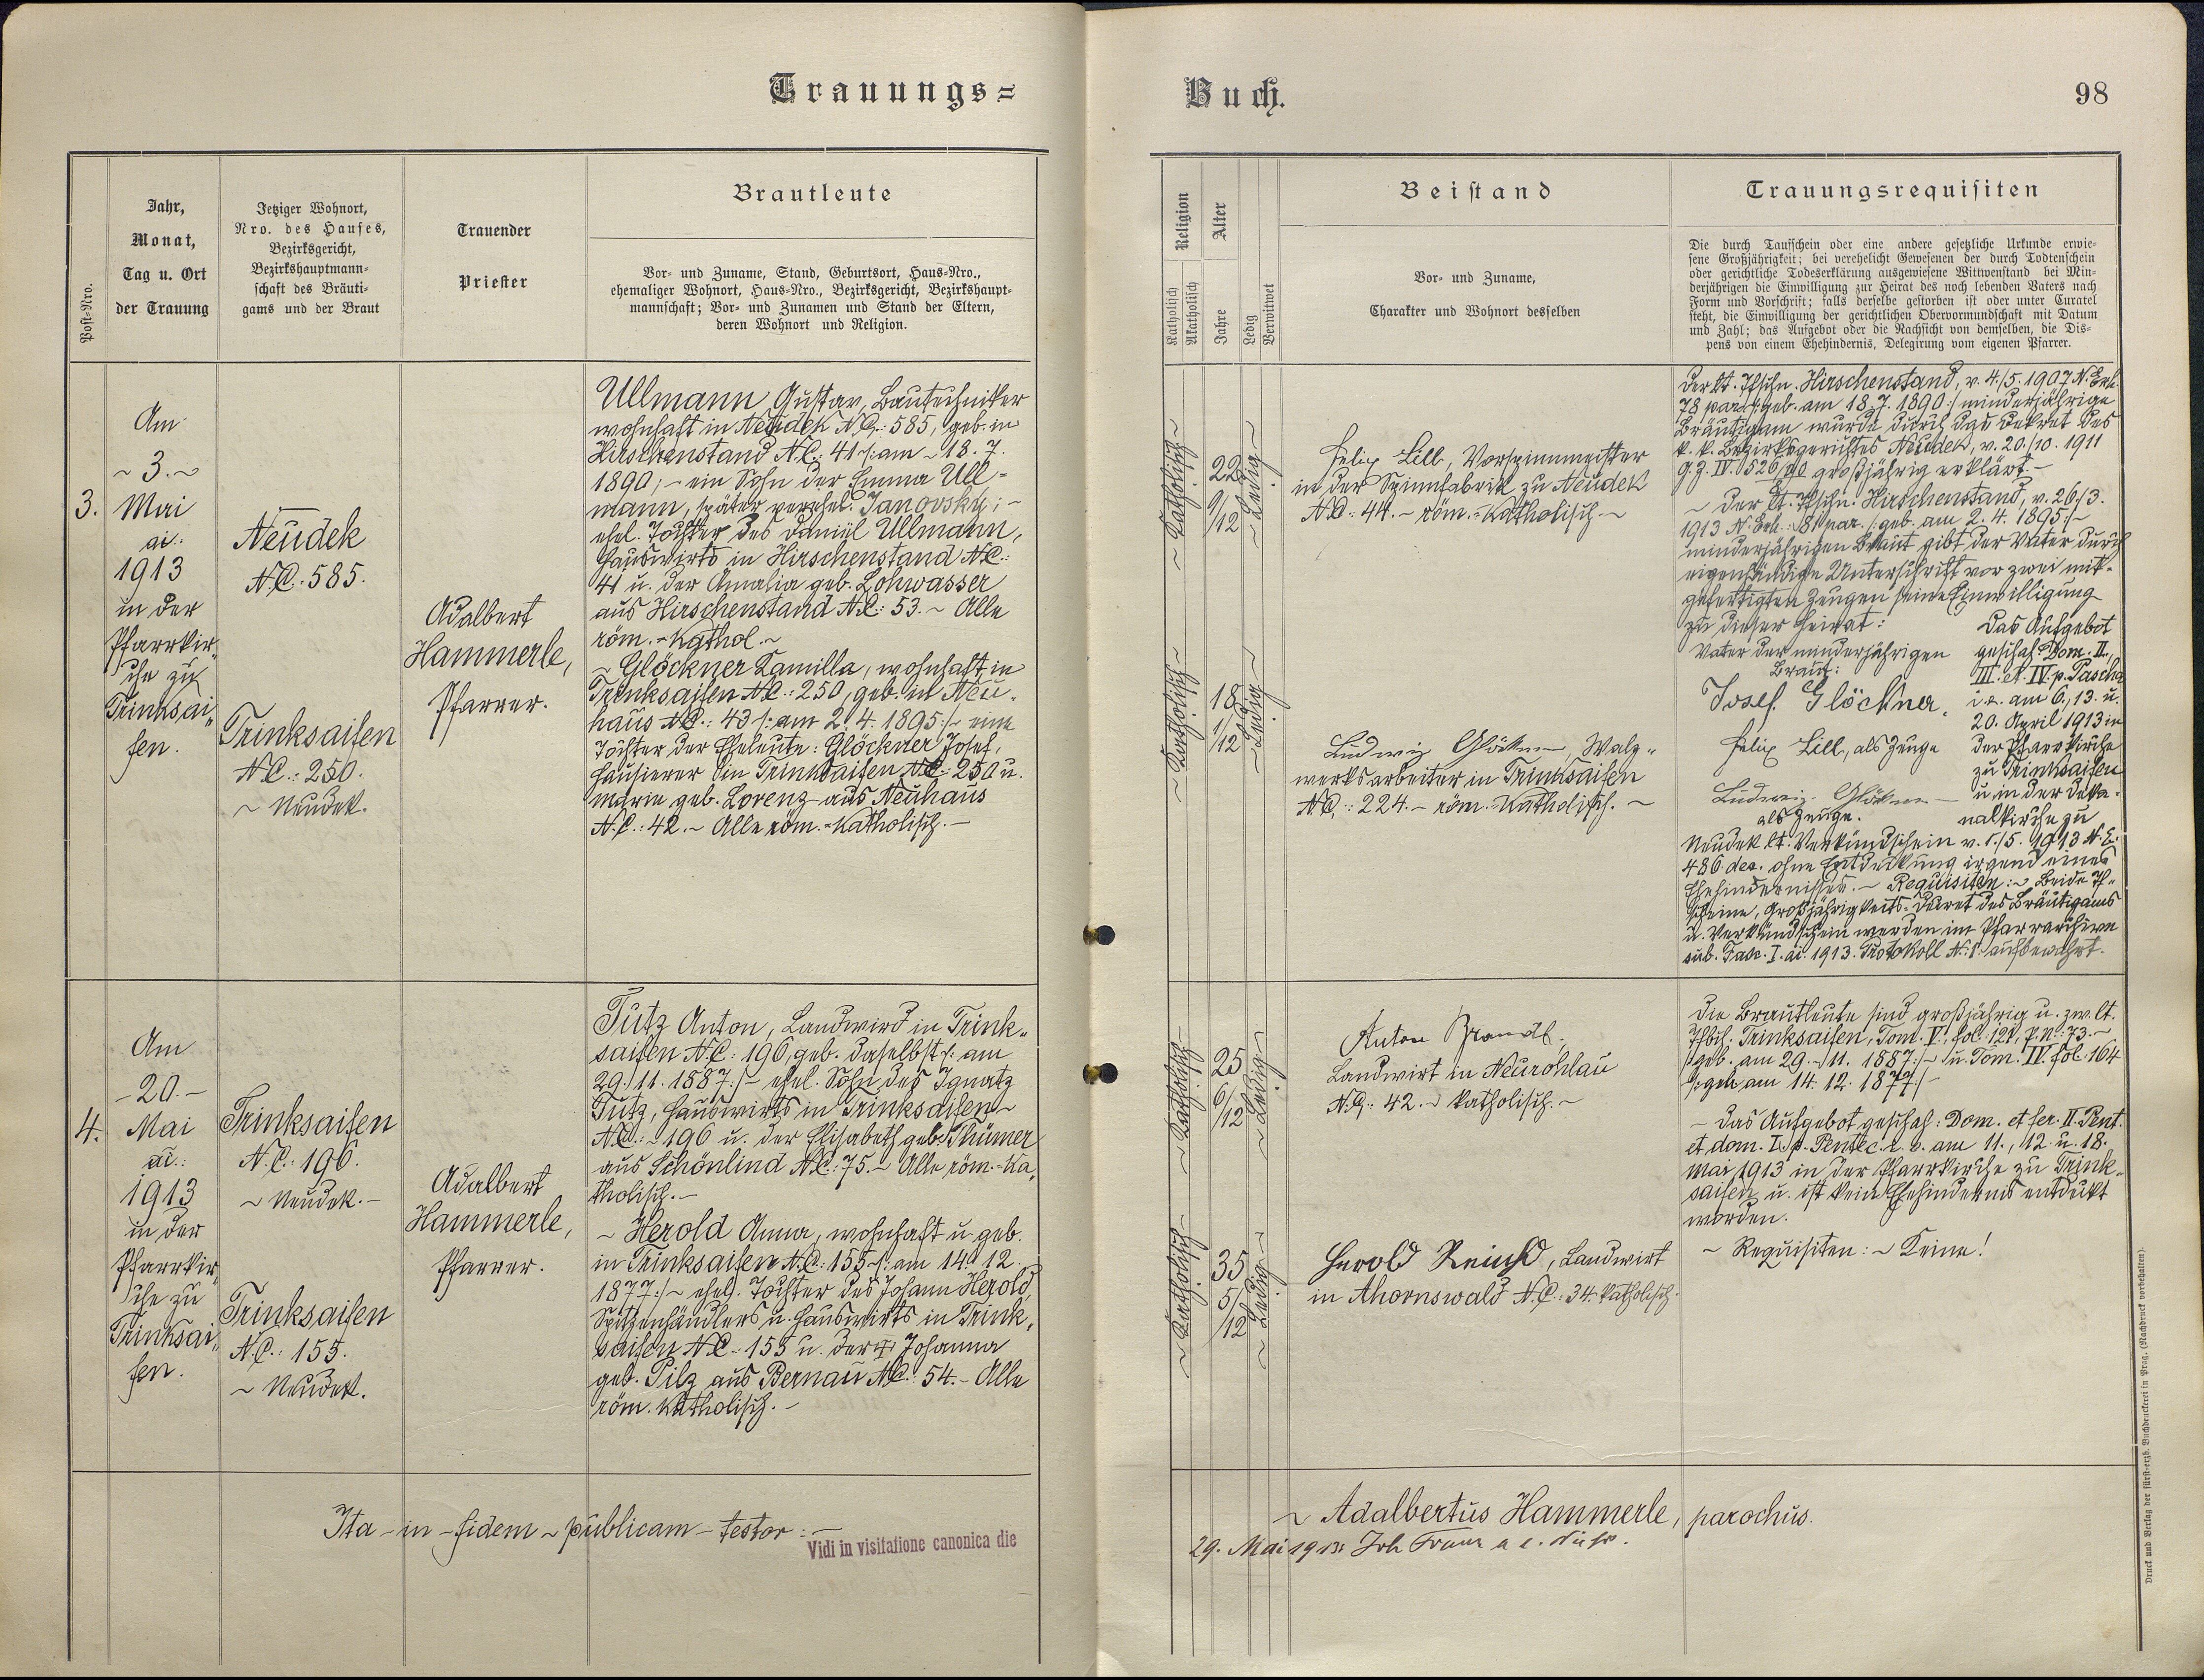 Trauungs=
Buch.
98
Post-Nro.
Jahr,
Monat,
Tag u. Ort
der Trauung
Jetziger Wohnort,
Nro. des Hauses,
Bezirksgericht,
Bezirkshauptmann-
schaft des Bräuti-
gams und der Braut
Trauender
Priester
Brautleute
Vor- und Zuname, Stand, Geburtsort, Haus-Nro.,
ehemaliger Wohnort, Haus-Nro., Bezirksgericht, Bezirkshaupt-
mannschaft; Vor- und Zunamen und Stand der Eltern,
deren Wohnort und Religion.
Religion
Katholisch
Akatholisch
Alter
Jahre
Ledig
Verwitwet
Beistand
Vor- und Zuname,
Charakter und Wohnort desselben
Trauungsrequisiten
Die durch Taufschein oder eine andere gesetzliche Urkunde erwie-
sene Großjährigkeit; bei verehelicht Gewesenen der durch Todtenschein
oder gerichtliche Todeserklärung ausgewiesene Wittwenstand bei Min-
derjährigen die Einwilligung zur Heirat des noch lebenden Vaters nach
Form und Vorschrift; falls derselbe gestorben ist oder unter Curatel
steht, die Einwilligung der gerichtlichen Obervormundschaft mit Datum
und Zahl; das Aufgebot oder die Nachsicht von demselben, die Dis-
pens von einem Ehehindernis, Delegirung vom eigenen Pfarrer.
3.
Am
~ 3. ~
Mai
ai.:
1913
in der
Pfarrkir„
che zu
Trinksai„
fen.
Neudek
N.C. 585.
Trinksaifen
N.C.: 250.
~ Neudek.
Adalbert
Hammerle,
Pfarrer.
Ullmann Gustav, Bautechniker
wohnhaft in Neudek N.C.: 585, geb. in
Hirschenstand N.C.: 41 /: am ~ 18. 7.
1890; - ein Sohn der Emma Ull =
mann, später verehel. Janovsky; -
ehel. Tochter des Daniel Ullmann,
Hauswirts in Hirschenstand N.C.:
41 u. der Amalia geb. Lohwasser
aus Hirschenstand N.C.: 53. ~ Alle
röm. - kathol. ~
~ Glöckner Kamilla, wohnhaft in
Trinksaifen N.C.: 250, geb. in Neu„
haus N.C.: 43 /: am 2. 4. 1895 :/ ~ eine
Tochter der Eheleute: Glöckner Josef,
Hausierer in Trinksaifen N.C.: 250 u.
Marie geb. Lorenz aus Neuhaus
N.C.: 42. ~ Alle röm. - katholisch. -
~ Katholisch ~
22
9/12
~ Ledig ~
Felix Lill, Vorspinnmeister
in der Spinnfabrik zu Neudek
N.C.: 44. ~ röm. - katholisch. ~
~ Katholisch ~
18
1/12
~ Ledig ~
Ludwig Glöckner, Walz„
werksarbeiter in Trinksaifen
N.C.: 224. ~ röm. - katholisch. ~
Der lt. Tfschn. Hirschenstand, v. 4./5. 1907 N. Exh.
78 par. /: geb. am 18. 7. 1890 :/ minderjährige
Bräutigam wurde durch das Dekret des
k. k. Bezirksgerichtes Neudek, v. 20./10. 1911
großjährig erklärt. -
~ Der lt. Tfschn. Hirschenstand, v. 26./3.
1913 N. Exh.: 81 par. /: geb. am 2. 4. 1895 :/ ~
minderjährigen Braut gibt der Vater durch
eigenhändige Unterschrift vor zwei mit„
gefertigten Zeugen seine Einwilligung
zu dieser Heirat:
Vater der minderjährigen
Braut:
Josef Glöckner.
Felix Lill, als Zeuge
Ludwig Glöckner
als Zeuge.
Das Aufgebot
geschah: Dom. II.,
III. et IV. p. Pascha
i. e. am 6., 13. u.
20. April 1913 in
der Pfarrkirche
zu Trinksaifen
u. in der Deka„
nalkirche zu
Neudek lt. Verkündschein v. 1./5. 1913 N. E.
486 dec. ohne Entdeckung irgend eines
Ehehindernisses. ~ Requisiten: ~ Beide Tf„
scheine, Großjährigkeits-Dekret des Bräutigams
u. Verkündschein werden im Pfarrarchive
sub. Fasc. I. ai: 1913. Protokoll N.: 1. aufbewahrt.
4.
Am
- 20. -
Mai
ai.:
1913
in der
Pfarrkir„
che zu
Trinksai„
fen.
Trinksaifen
N.C.: 196.
~ Neudek. -
Trinksaifen
N.C.: 155.
~ Neudek.
Adalbert
Hammerle,
Pfarrer.
Tütz Anton, Landwird in Trink„
saifen N.C.: 196, geb. daselbst /: am
29./11. 1887 :/ - ehel. Sohn des Ignatz
Tütz, Hauswirts in Trinksaifen ~
N.C.: ~ 196 u. der Elisabeth geb. Thümer
aus Schönlind N.C.: 75. ~ Alle röm. - ka„
tholisch. -
~ Herold Anna, wohnhaft u. geb.
in Trinksaifen N.C.: 155 /: am 14. 12.
1877 :/ ~ ehel. Tochter des Johann Herold,
Spitzenhändlers u. Hauswirts in Trink„
saifen N.C.: 155 u. der † Johanna
geb. Pilz aus Bernau N.C.: 54. - Alle
röm. katholisch. -
~ Katholisch ~
25
6/12
~ Ledig ~
Anton Brandl.
Landwirt in Neurohlau
N.C.: 42. ~ katholisch. ~
~ Katholisch ~
35
5/12
~ Ledig ~
Herold Reinhold, Landwirt
in Ahornswald N.C.: 34. katholisch.
Die Brautleute sind großjährig u. zw. lt.
Tfbch. Trinksaifen, Tom. V., fol. 121, P. N.: 73. ~
/: geb. am 29. ~ 11. 1887 :/ ~ u. Tom. IV. fol. 164
/: geb. am 14. 12. 1877 :/ -
~ Das Aufgebot geschah: Dom. et fer. II. Pent.
et dom. I. p. Pentec. i. e. am 11., 12. u. 18.
Mai 1913 in der Pfarrkirche zu Trink„
saifen u. ist kein Ehehindernis entdeckt
worden.
~ Requisiten: ~ Keine!
Ita - in - fidem ~ publicam - testor: -
~ Adalbertus Hammerle, parochus.
Vidi in visitatione canonica die
29. Mai 1913.
Druck und Verlag der fürst-erzb. Buchdruckerei in Prag. (Nachdruck vorbehalten).